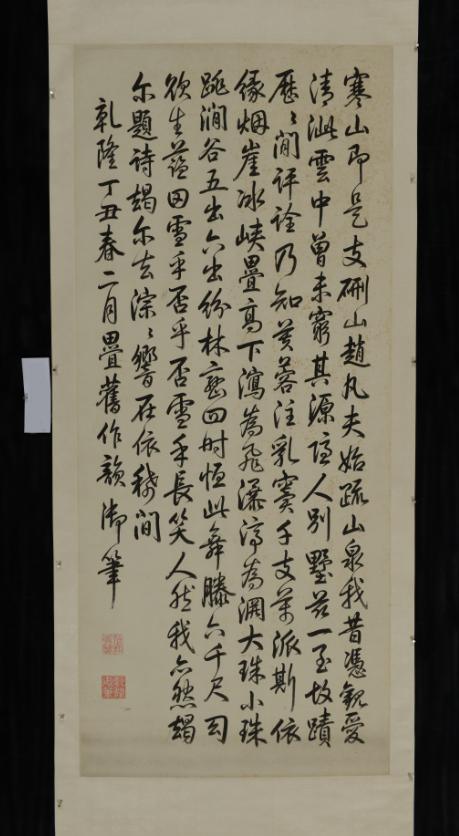 寒山即是支硎山趙凡夫始疏山泉我昔憑觀愛
清泚雲中曾未窮其源隱人別墅茲一至故蹟
歷〻閒評詮乃知芙蓉注乳竇千支萬派斯依
緣烟崖冰峽疊高下瀉為飛瀑渟為淵大珠小珠
跳澗谷五出六出紛林巔四時恆此舞滕六千尺
欲生藍田雪乎否乎否雪乎長笑人然我亦然朅
尔題詩朅尔去淙〻響在依稀間
乾隆丁丑春二月疊舊作韻御筆